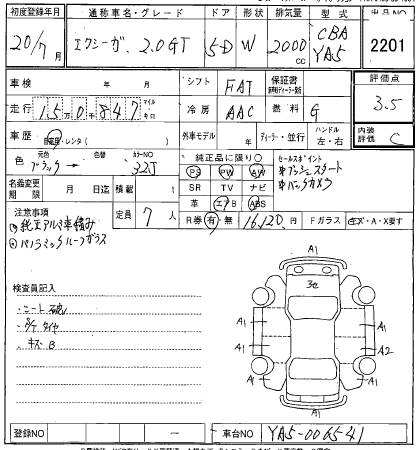 初度登録年月 通称車名・グレード ドア 形状 排気量 型式 出品NO
20/7月 エクシーガ 2.0GT 5D W 2000cc CBA YA5 2201
車検 年 月 シフト FAT 保証書 評価点
走行 15 0 847 マイル キロ 冷房 AAC 燃料 G 3.5
車歴 自家用・レンタ( ) 外車モデル 年 ディーラー・並行 ハンドル 左・右 内装評価 C
色 元色 ブラック → 色替 カラーNO 32J 純正品に限り○ セールスポイント
PS PW AW プッシュスタート
名義変更期限 月 日迄 積載 t SR TV ナビ バックカメラ
革 エアB ABS
注意事項 定員 7人 R券 有・無 16,120円 Fガラス モズ・A・X要す
純正アルミ車積み
パノラマックルーフガラス
検査員記入
タイヤ
キズB
A1
3e
A1 A1
A1 A2
A1 A1
A1
登録NO 車台NO YA5-006541